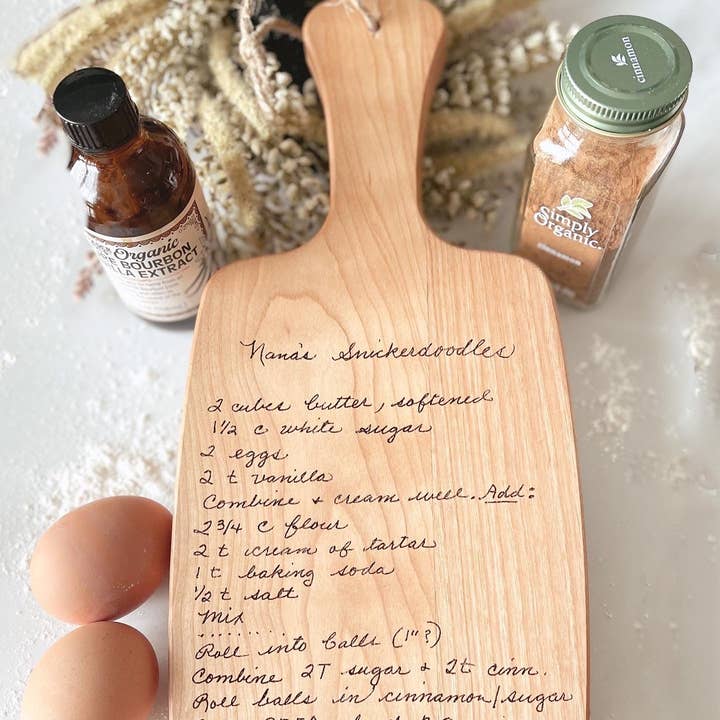 cinnamon
Simply
Organic
Organic
BOURBON
EXTRACT
Nana's Snickerdoodles
2 cubes butter, softened
1 1/2 c white sugar
2 eggs
2 t vanilla
Combine + cream well. Add:
2 3/4 c flour
2 t cream of tartar
1 t baking soda
1/2 t salt
Mix
.........
Roll into balls (1"?)
Combine 2T sugar + 2t cinn.
Roll balls in cinnamon/sugar